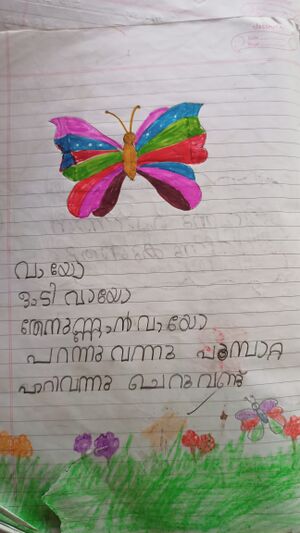 വായോ
ഓടി വായോ
തേനുണ്ണാൻ വായോ
പറന്നു വന്നു പൂമ്പാറ്റ
പാറിവന്നു ചെറുവണ്ട്